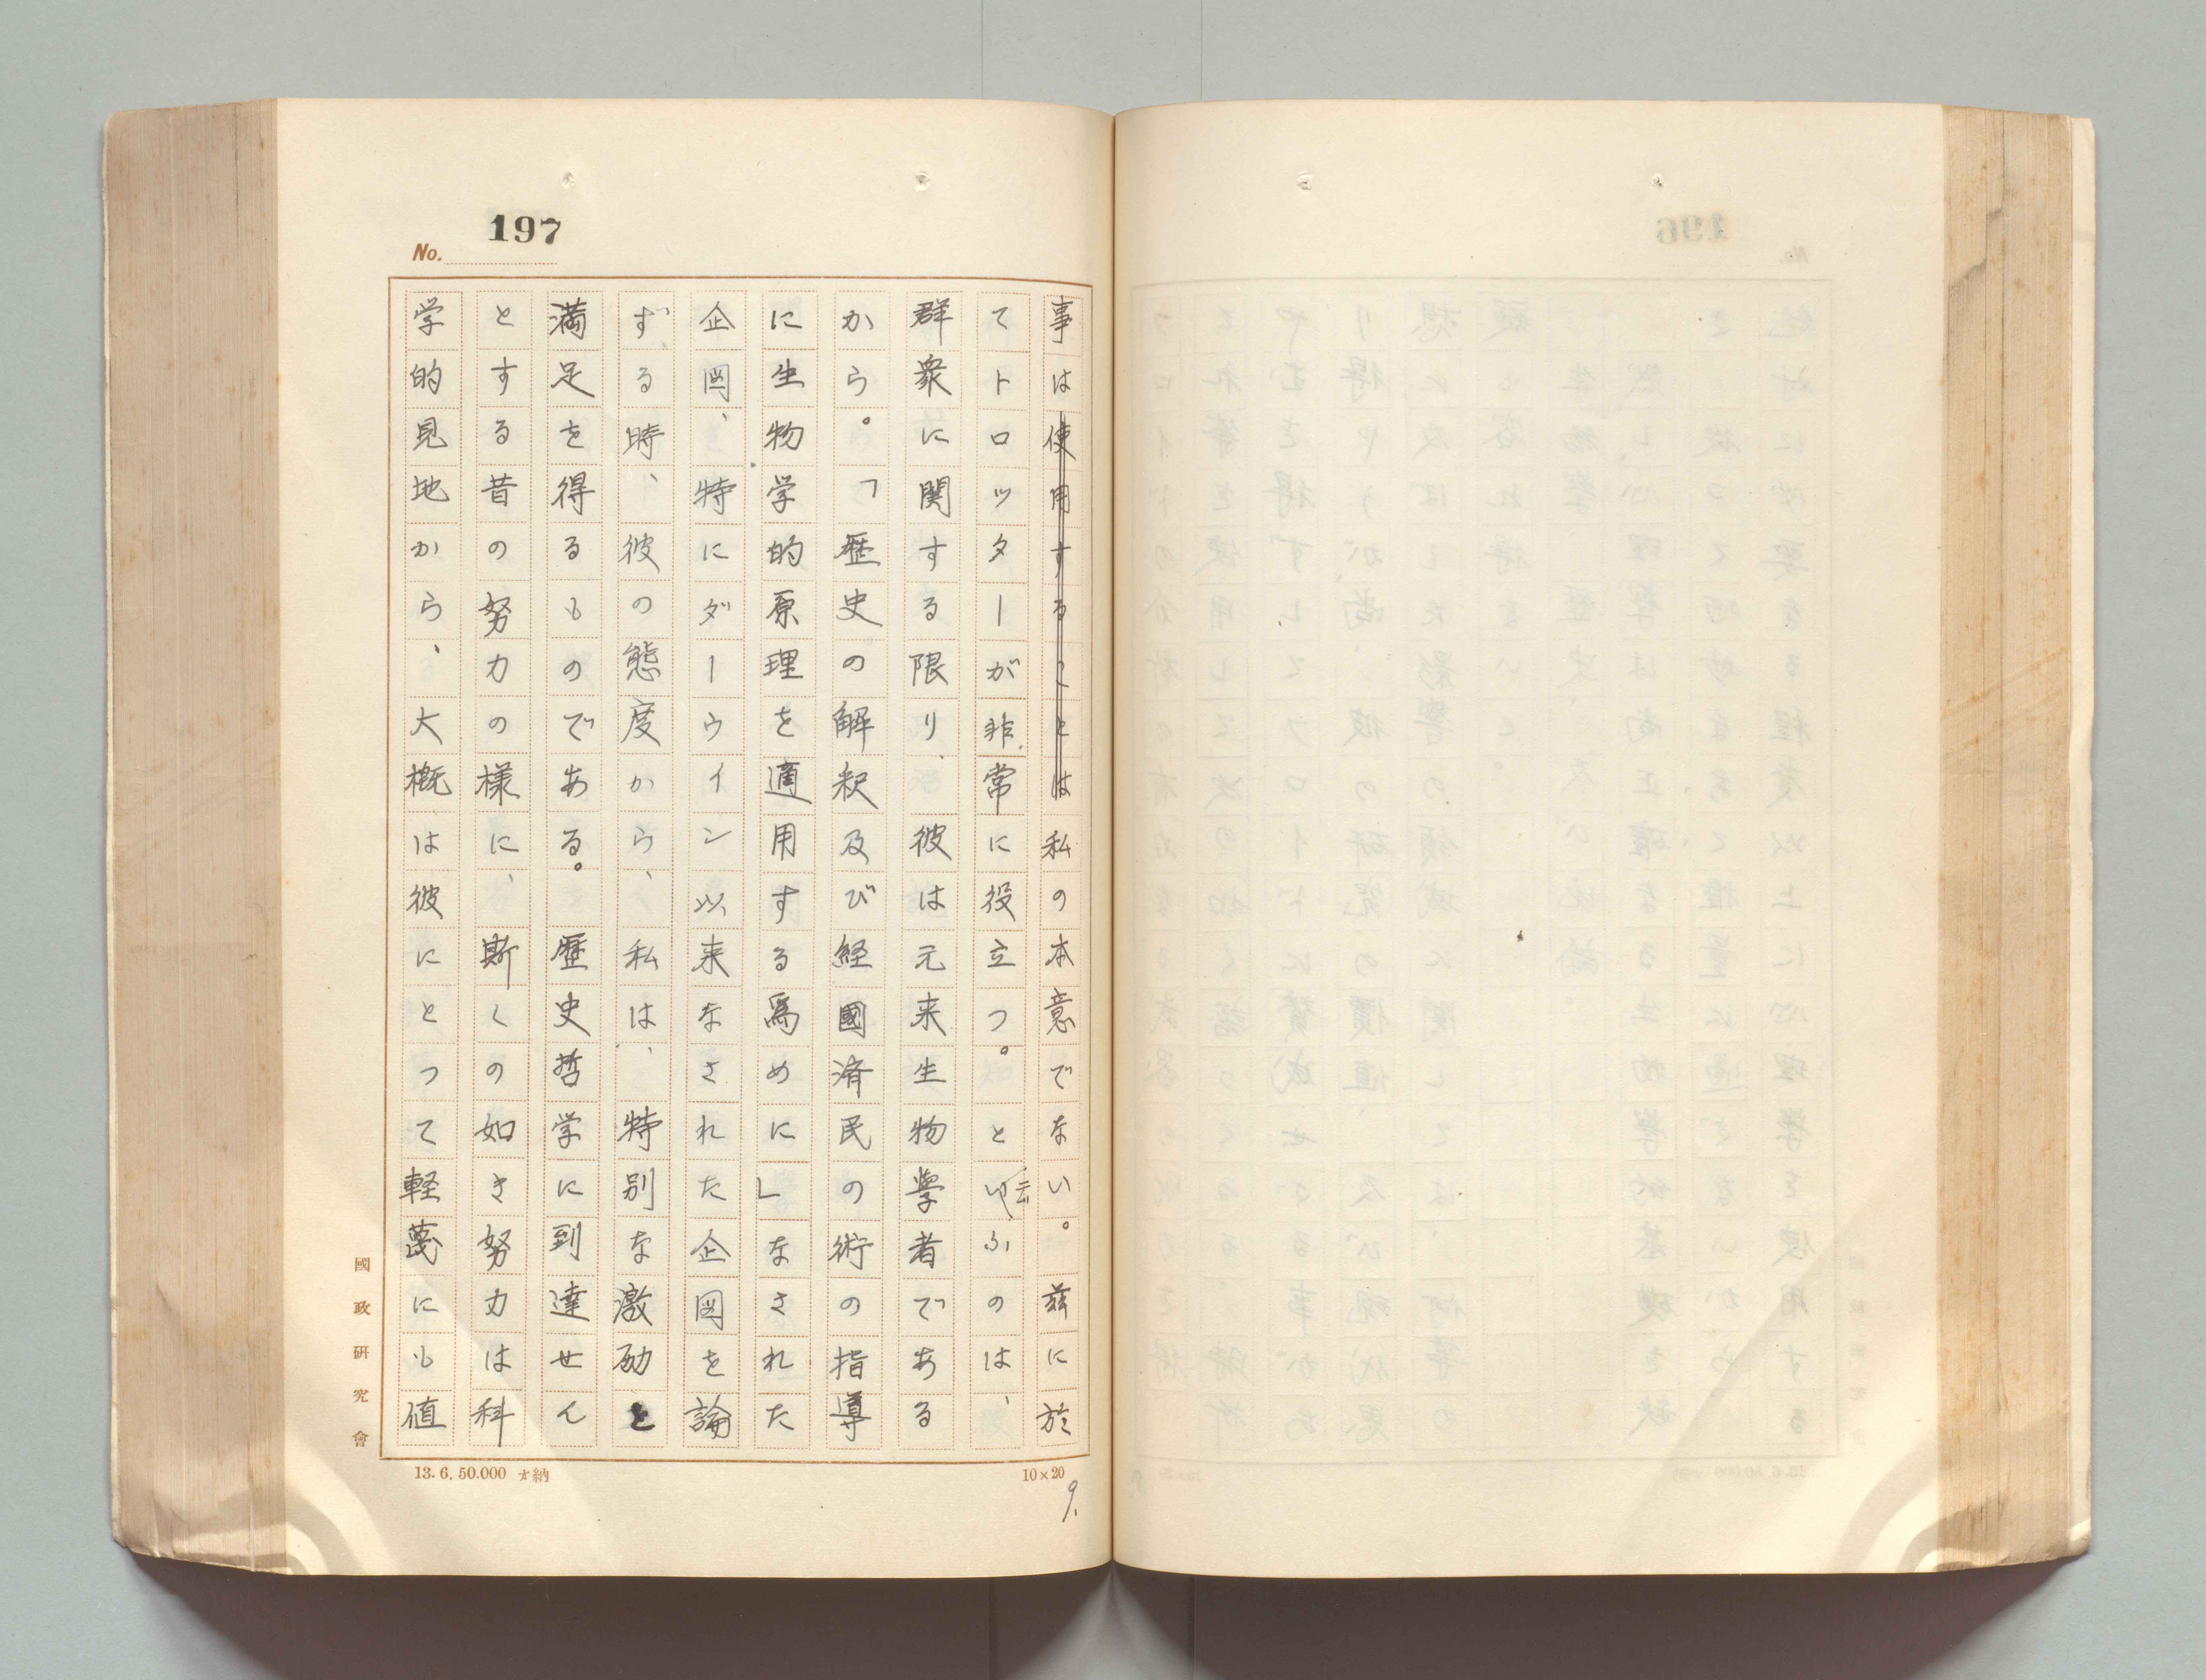 No. 197
事は使用することは私の本意でない。茲に於
てトロッターが非常に役立つ。と云ふのは、
群衆に関する限り、彼は元来生物學者である
から。「歴史の解釈及び経國済民の術の指導
に生物学的原理を適用する爲めに」なされた
企図、特にダーウイン以来なされた企図を論
ずる時、彼の態度から、私は、特別な激励と
満足を得るものである。歴史哲学に到達せん
とする昔の努力の様に、斯くの如き努力は科
学的見地から、大概は彼にとつて軽蔑にも値
國政研究會
13.6.50.000 納
10×20
9.